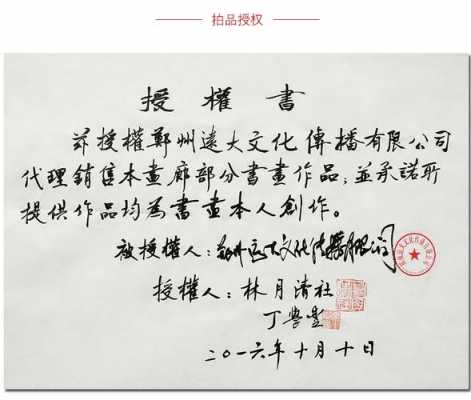 拍品授权
授權書
茲授權鄭州遠大文化傳播有限公司
代理銷售本畫廊部分書畫作品；並承諾所
提供作品均為書畫本人創作。
被授權人：郑州远大文化传播有限公司
授權人：林月清社
丁學
二〇一六年十月十日